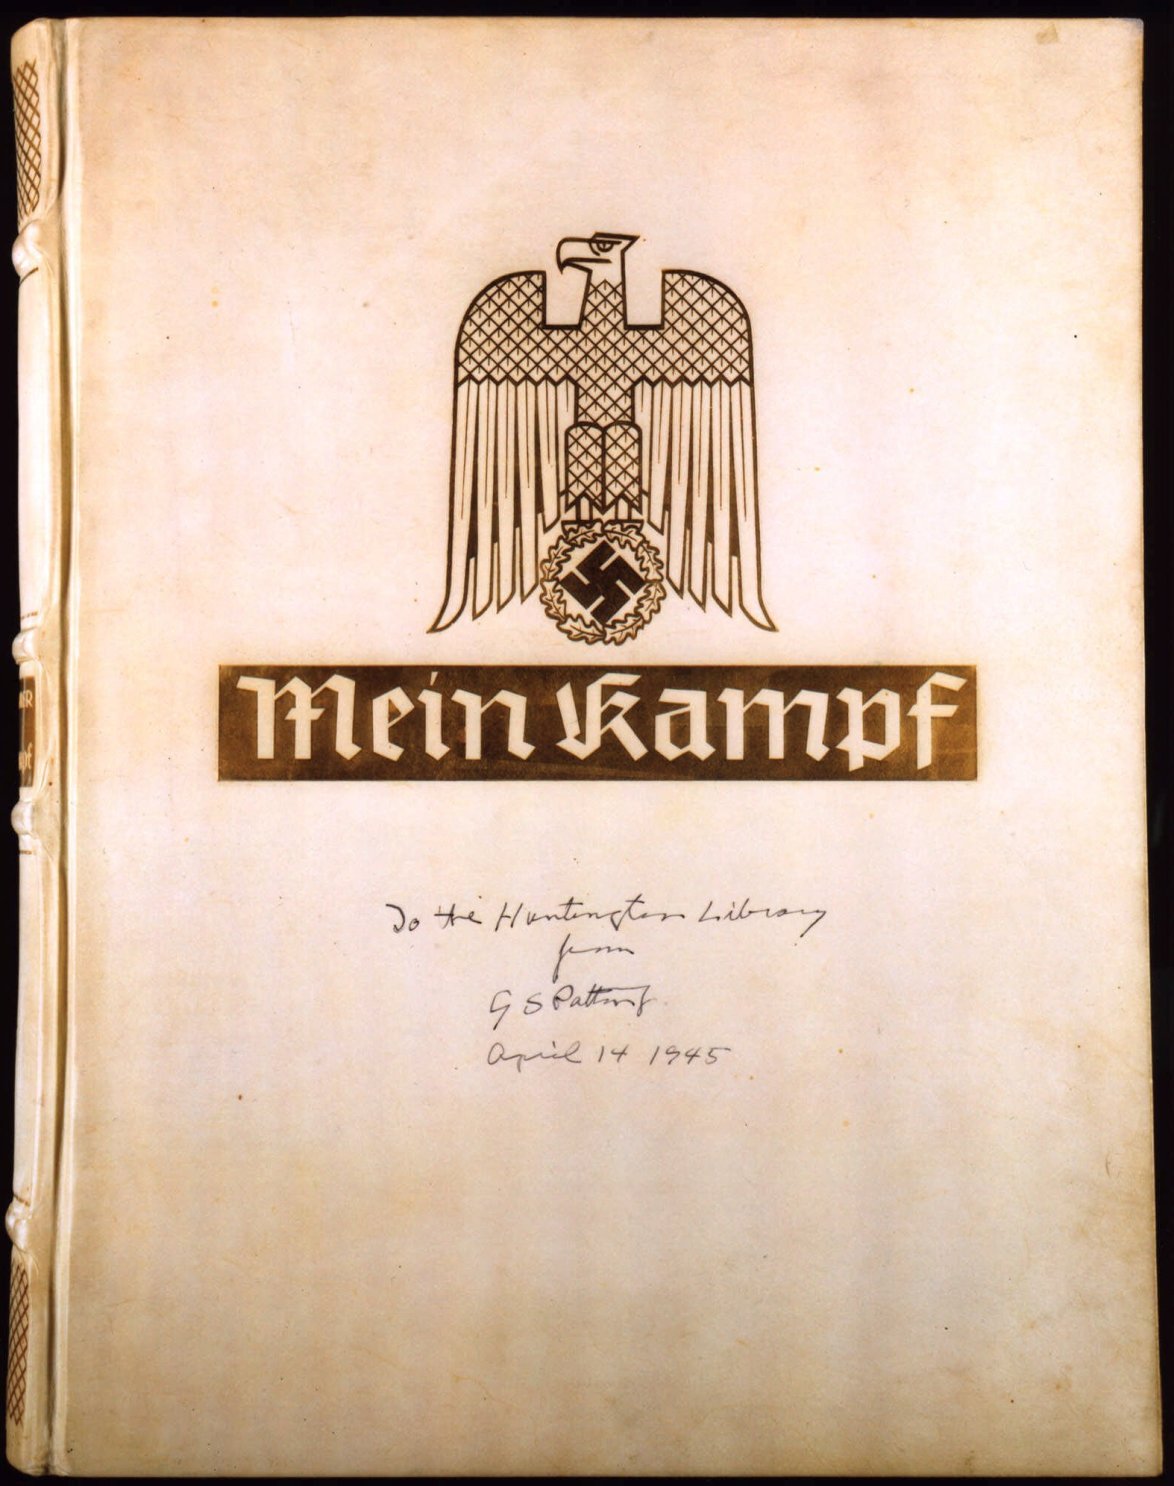 Mein Kampf
To the Huntington Library
from
G S Patton Jr
April 14 1945